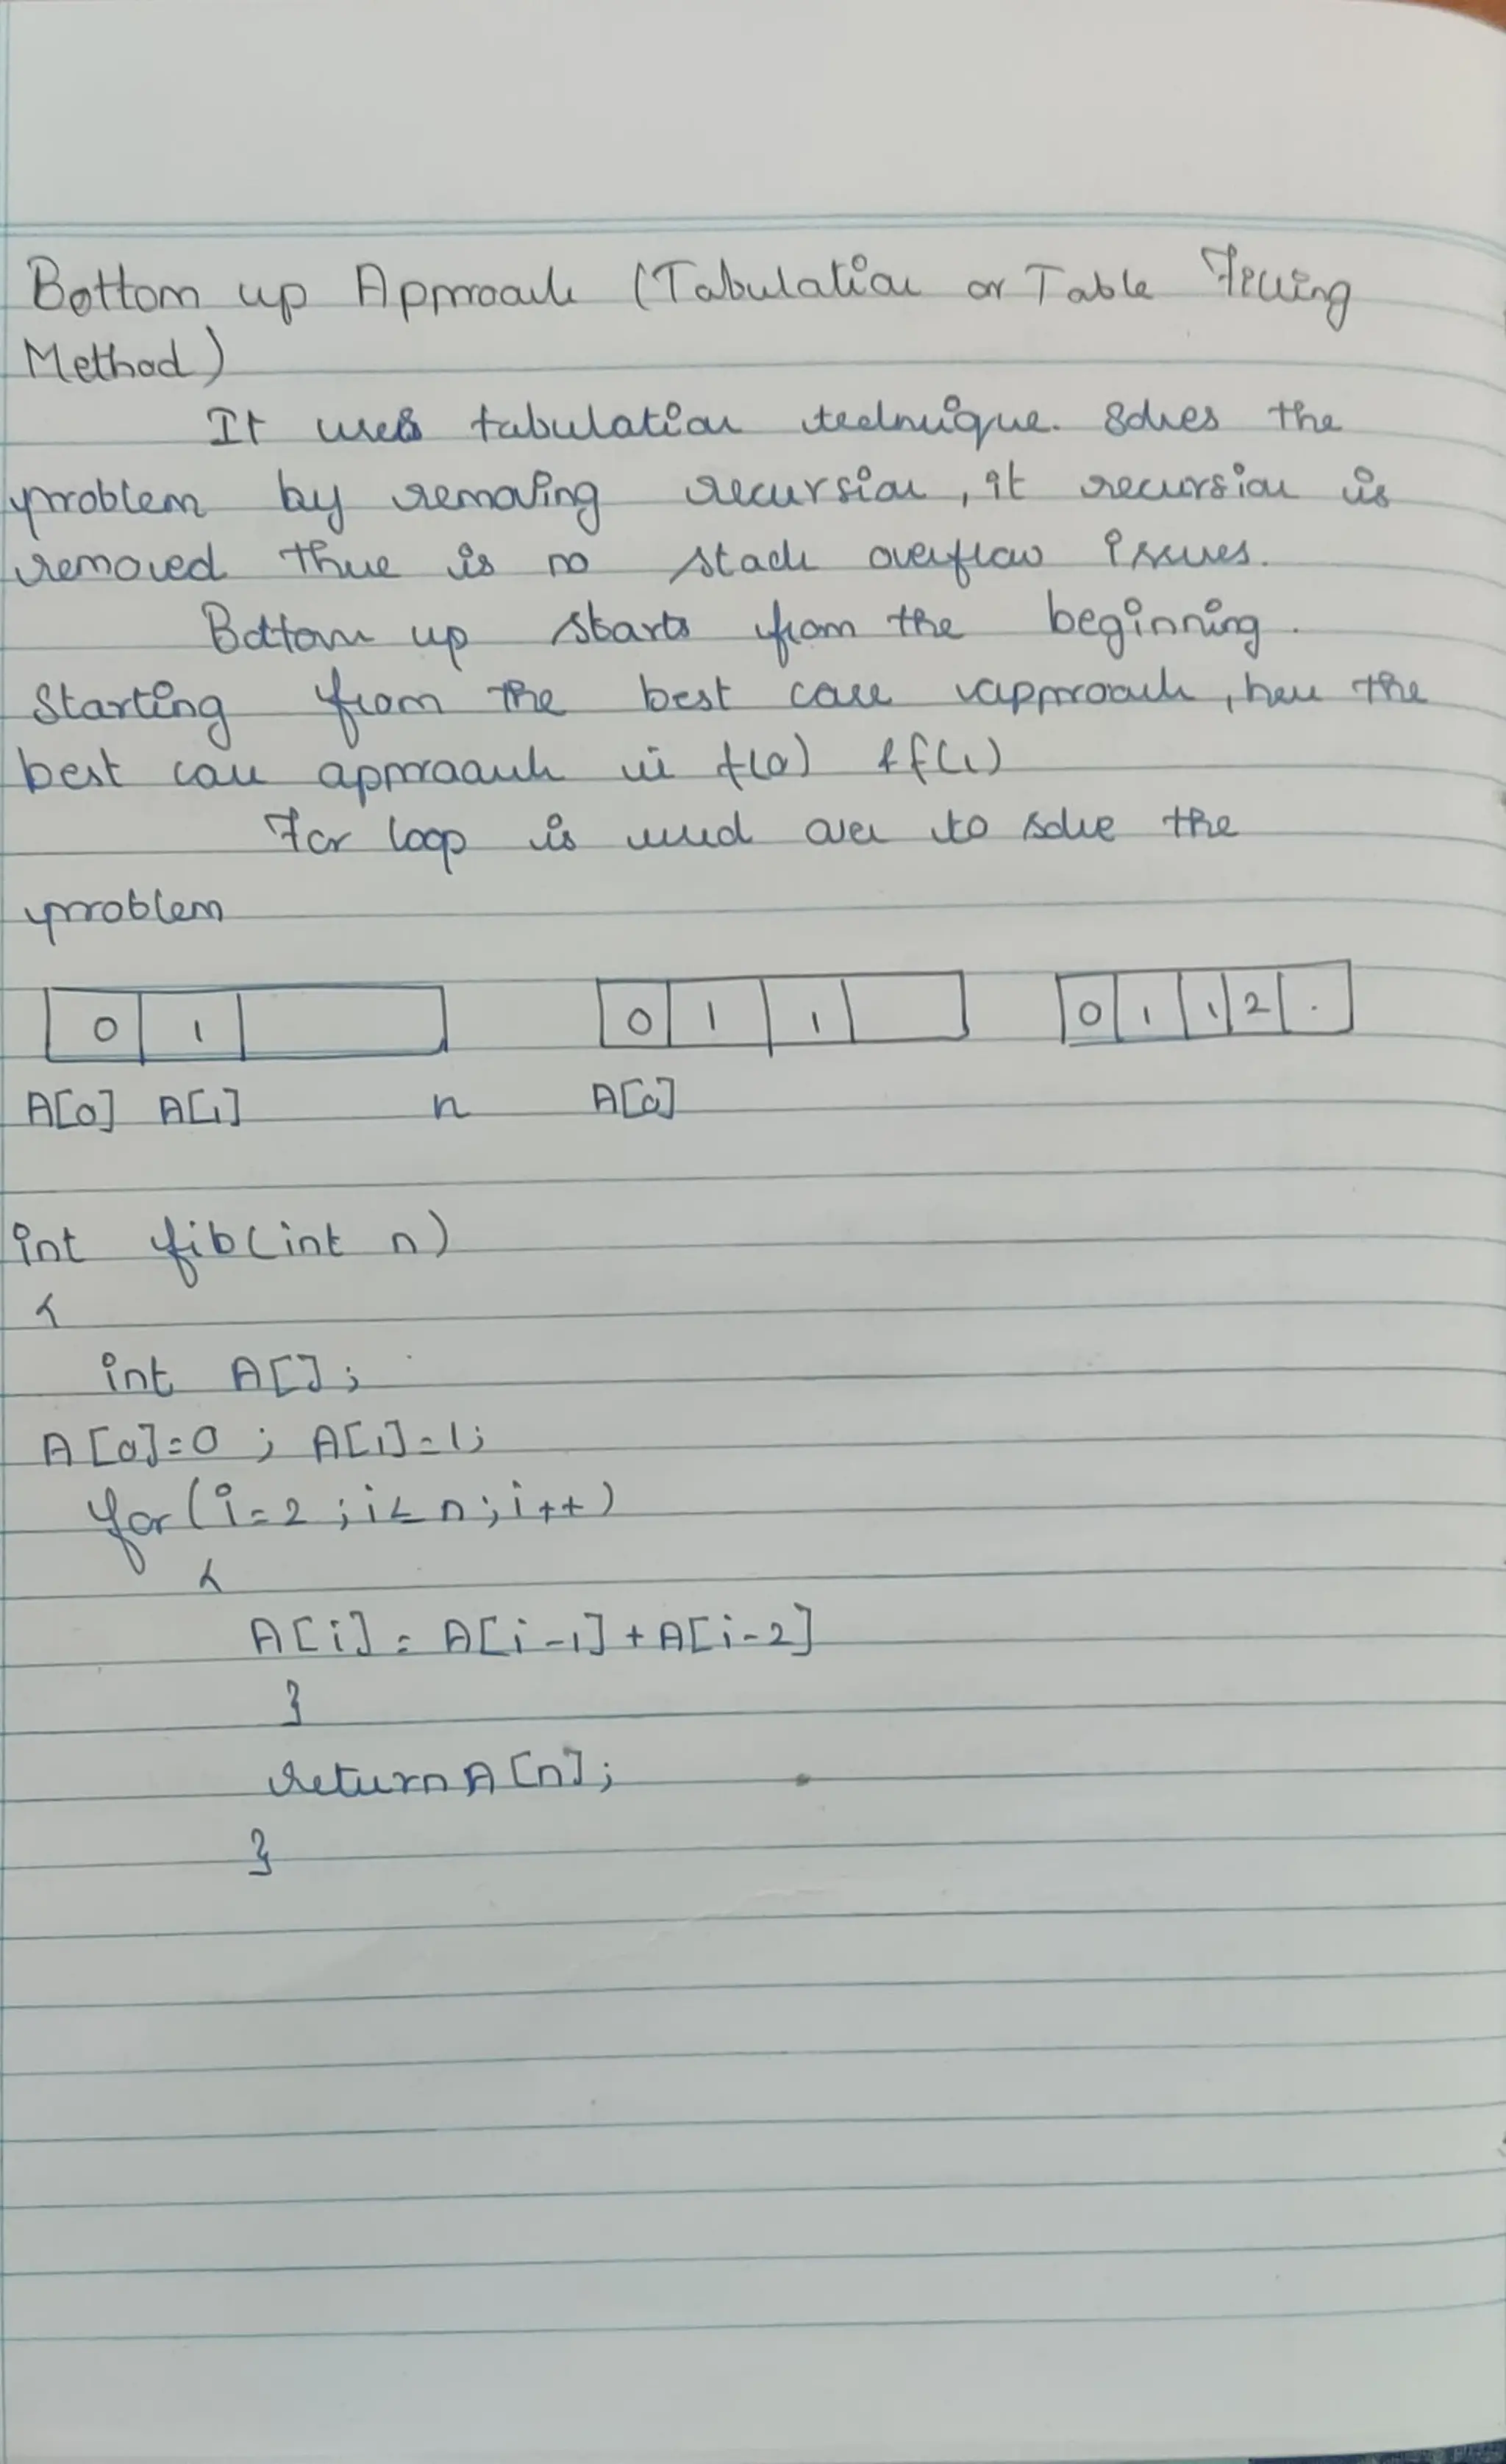 Bottom up Approach (Tabulation or Table Filling
Method)
It uses tabulation technique. Solves the
problem by removing recursion, it recursion is
removed there is no stack overflow issues.
Bottom up starts from the beginning.
Starting from the best case approach, here the
best case approach is f(0) & f(1)
For loop is used over to solve the
problem
0 1 0 1 1 0 1 1 2 .
A[0] A[1] n A[0]
int fib(int n)
{
int A[];
A[0]=0; A[1]=1;
for(i=2;i≤n;i++)
{
A[i]=A[i-1]+A[i-2]
}
return A[n];
}